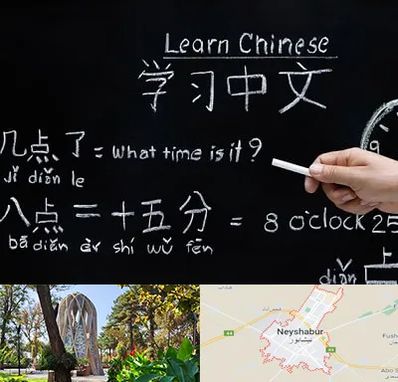 Learn Chinese
学习中文
几点了 = what time is it?
jǐ diǎn le
9
八点二十五分 = 8 o'clock 25
bā diǎn èr shí wǔ fēn
diǎn
Neyshabur
نیشابور
44
44
Fush
Abo S